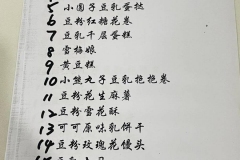 5 小圆子豆乳蛋挞
6 豆粉红糖花卷
7 豆乳千层蛋糕
8 雪梅娘
9 黄豆糕
10 小熊丸子豆乳抱抱卷
11 豆粉花生麻薯
12 豆粉雪花酥
13 可可原味乳饼干
14 豆粉玫瑰花馒头